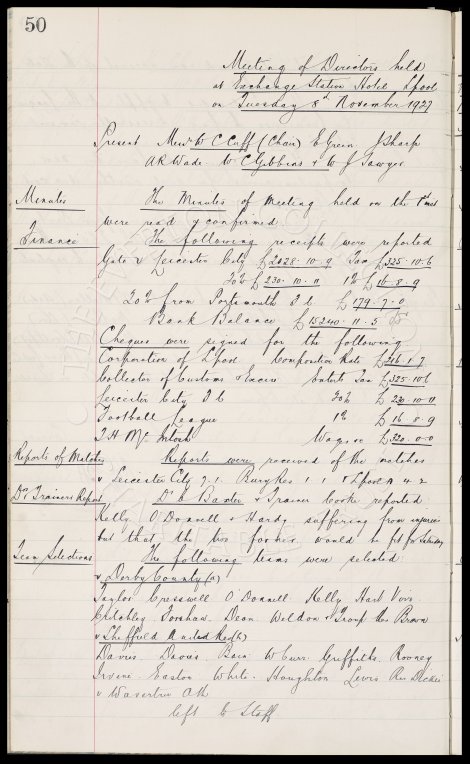 50
Meeting of Directors held
at Exchange Station Hotel Lpool
on Tuesday 8th November 1927
Present Messrs W C Cuff (Chair) E Green J Sharp
A R Wade W C Gibbins & W J Sawyer
Minutes The Minutes of Meeting held on the 1st inst
were read & confirmed
Finance The following receipts were reported
Gate v Leicester City £2028.10.9 Tax £325.10.6
20% £230.10.11 1% £16.8.9
20% from Portsmouth F C £179.7.0
Bank Balance £15240.11.5
Cheques were signed for the following
Corporation of Lpool Composition Rate £216.1.7
Collector of Customs & Excise Entertts Tax £325.10.6
Leicester City F C 20% £230.10.11
Football League 1% £16.8.9
T H McIntosh Wages £320.0.0
Reports of Matches Reports were received of the matches
v Leicester City 7.1. Bury Res 1.1 & Lpool A 4.2
Dr & Trainers Report Dr Baxter & Trainer Cooke reported
Kelly O'Donnell & Hardy suffering from injuries
but that the two former would be fit for Saturday
Team Selections The following teams were selected
v Derby County (a)
Taylor Cresswell O'Donnell Kelly Hart Virr
Critchley Forshaw Dean Weldon & Troup Res Brown
v Sheffield United Res (h)
Davies Davies Bain W Curr Griffiths Rooney
Irvine Easton White Houghton Lewis Res Dickie
v Wavertree Ath
left to Staff